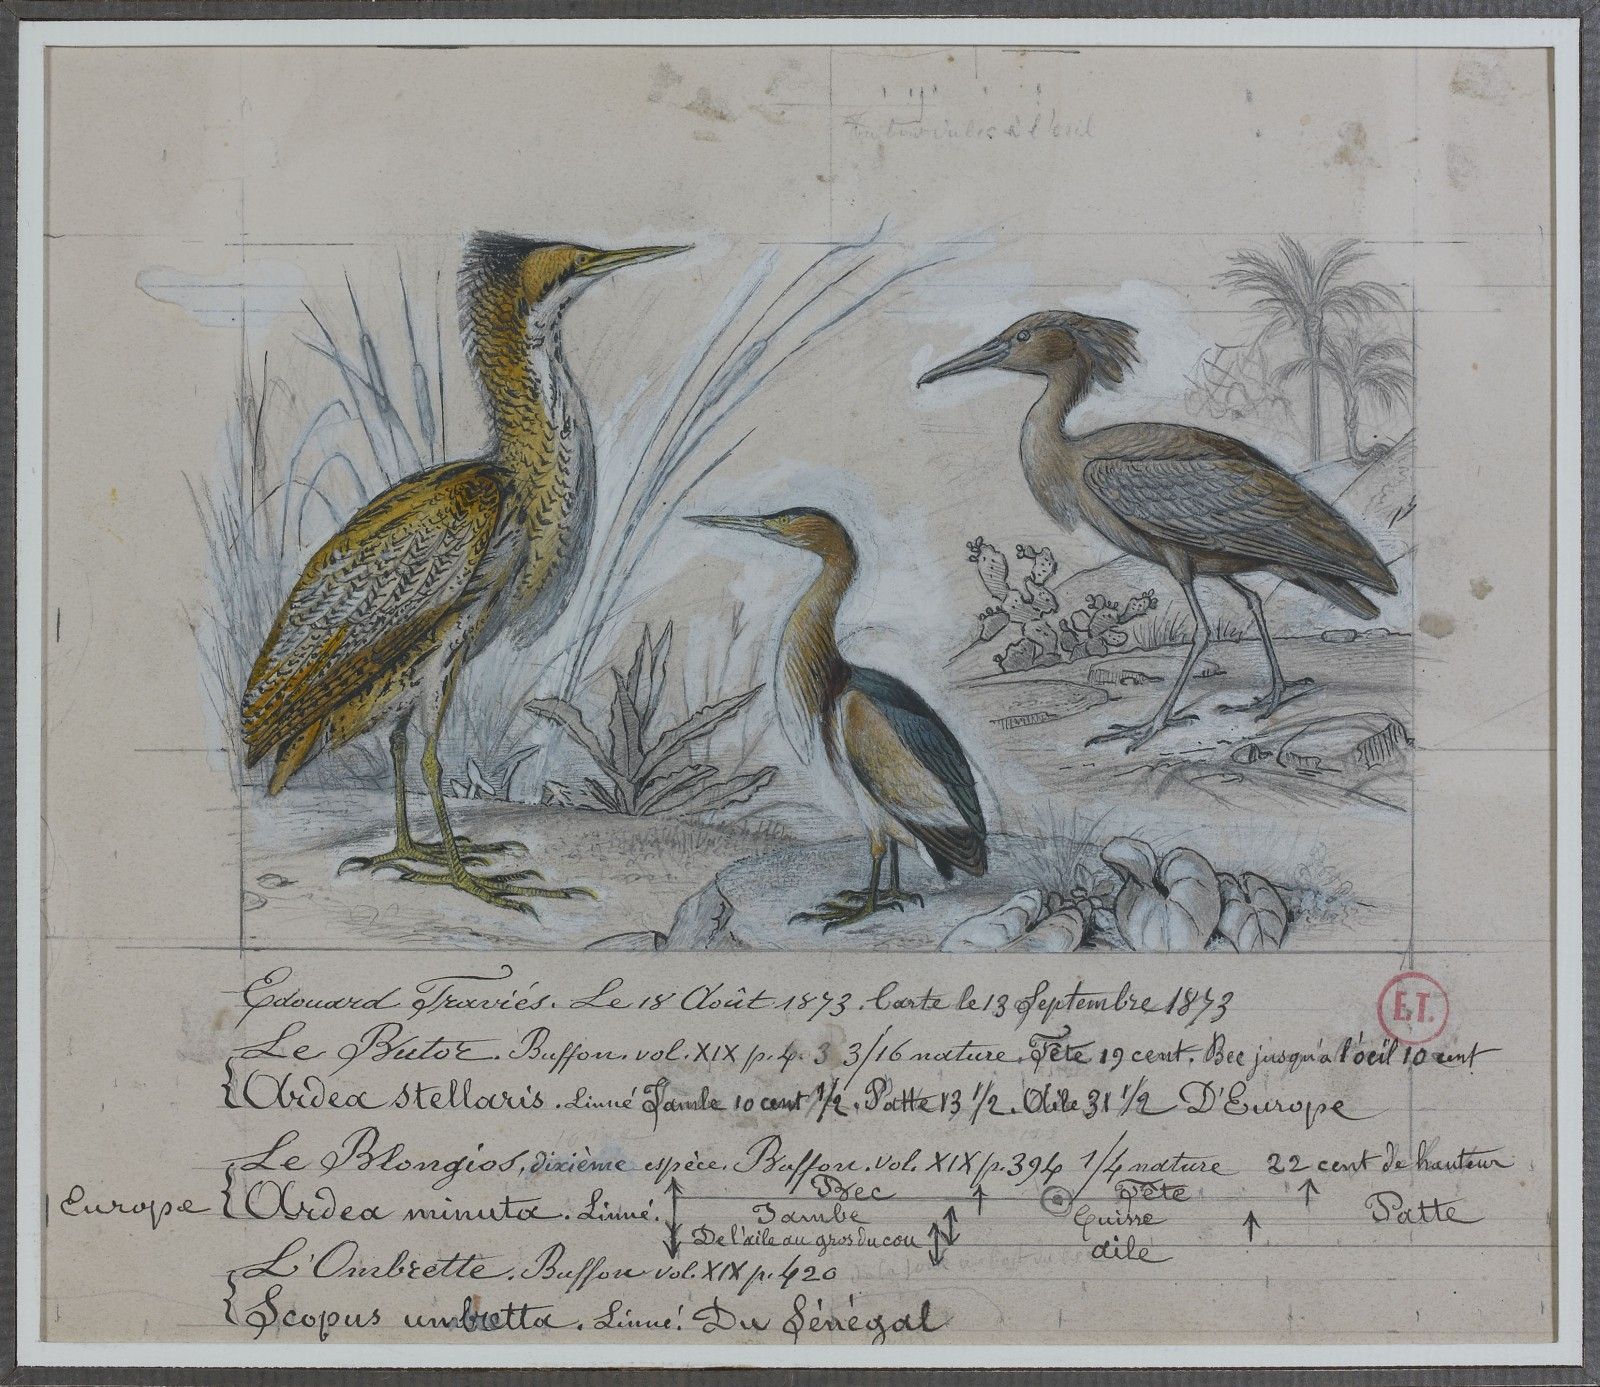 à l'œil
Edouard Traviés. Le 18 Août 1873. Carte le 13 Septembre 1873
E.T.
Le Butor. Buffon. vol. XIX p. 4. 3 3/16 nature. Tête 19 cent. Bec jusqu'a l'œil 10 cent
Ardea stellaris. Linné Jambe 10 cent 1/2. Patte 13 1/2. Aile 31 1/2 D'Europe
Le Blongios, dixième espèce. Buffon. vol. XIX p. 394 1/4 nature 22 cent de hauteur
Bec Tête
Europe Ardea minuta. Linné. Jambe Cuisse Patte
De l'aile au gros du cou aile
L'Ombrette. Buffon vol. XIX p. 420
Scopus umbretta. Linné. Du Sénégal